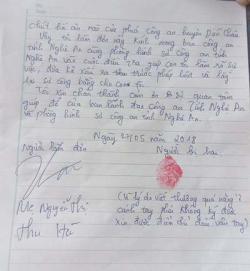 của phía công an huyện Diễn Châu
Vậy tôi làm đơn này kính mong ban công an
tỉnh Nghệ An cùng phòng hình sự công an tỉnh
Nghệ An vào cuộc điều tra giúp con tôi làm rõ sự
việc, đưa kẻ xấu ra trước pháp luật và lấy
lại sự công bằng cho con tôi
Tôi xin chân thành cảm ơn sự quan tâm
giúp đỡ của ban lãnh đạo công an Tỉnh Nghệ An
và phòng hình sự công an tỉnh Nghệ An.
Ngày 27/05 năm 2018
Người viết đơn
Người bị hại
Mẹ Nguyễn Thị
Thu Hà
(Vì lý do vết thương quá nặng ở
cánh tay phải không ký được
xin được điểm chỉ dấu vân tay)